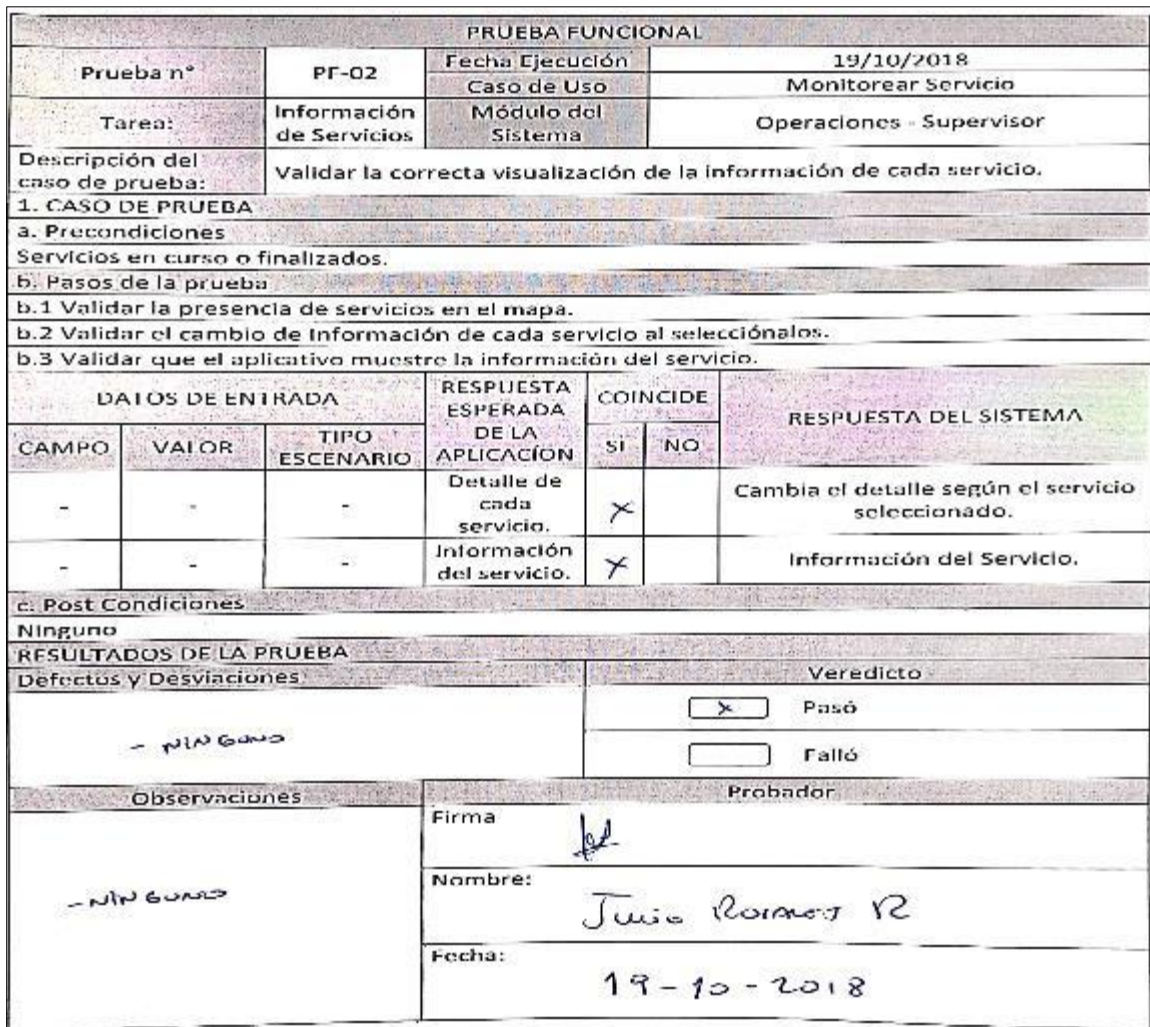 PRUEBA FUNCIONAL
Prueba n° PF-02 Fecha Ejecución 19/10/2018
Caso de Uso Monitorear Servicio
Tarea: Información de Servicios Módulo del Sistema Operaciones - Supervisor
Descripción del caso de prueba: Validar la correcta visualización de la información de cada servicio.
1. CASO DE PRUEBA
a. Precondiciones
Servicios en curso o finalizados.
b. Pasos de la prueba
b.1 Validar la presencia de servicios en el mapa.
b.2 Validar el cambio de Información de cada servicio al selecciónalos.
b.3 Validar que el aplicativo muestre la información del servicio.
DATOS DE ENTRADA
RESPUESTA ESPERADA DE LA APLICACÍON
COINCIDE
RESPUESTA DEL SISTEMA
CAMPO VALOR TIPO ESCENARIO SI NO
- - - Detalle de cada servicio. X Cambia el detalle según el servicio seleccionado.
- - - Información del servicio. X Información del Servicio.
c. Post Condiciones
Ninguno
RESULTADOS DE LA PRUEBA
Defectos y Desviaciones Veredicto
X Pasó
- NINGUNO
Falló
Observaciones Probador
Firma
- NINGUNO
Nombre:
Fecha:
19-10-2018